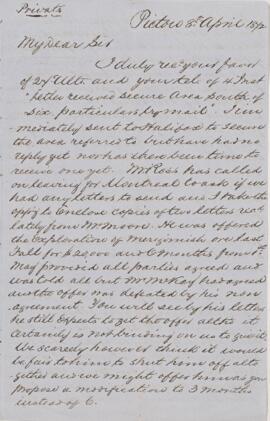 Private
Pictou 8th April 1872
My Dear Sir
I duly recd your favor
of 28 Ulto. and your tel of 4 Inst
"Letter received Secure Area South of
Six, particulars by mail". I im-
mediately sent to Halifax to secure
the area referred to but have had no
reply yet nor has there been time to
receive one yet. Mr Ross has called
on leaving for Montreal to ask if we
had any letters to send and I take the
oppy to enclose copies of two letters recd
lately from Mr Moore. He was offered
the exploration of Merigomish ore last
Fall for $20000 and 6 months from 1st
May provided all parties agreed and
was told all but Mr McKay had agreed
and the offer was defeated by his non
agreement. You will see by his letters
he still expects to get the offer altho it
certainly is not binding on us to give it.
We scarcely however think it would
be fair to him to shut him off alto-
gether and we might offer him was you
propose a modification to 3 months
instead of 6.